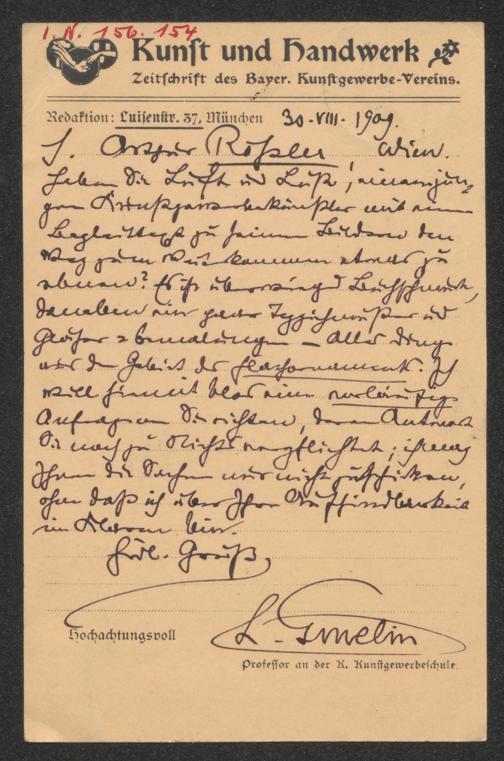 I. N. 156.154
Kunst und Handwerk
Zeitschrift des Bayer. Kunstgewerbe-Vereins.
Redaktion: Luisenstr. 37, München 30-VIII-1909.
H. Arthur Rößler Wien.
Haben Sie Luft und Lust, einem jun-
gen Kunstgewerbekünstler mit einem
Begleittext zu seinen Bildern den
Weg zum Weiterkommen etwas zu
ebnen? Es ist überwiegend Buchschmuck,
daneben ein paar Teppichmuster und
Gläser-bemalungen – alles Dinge
aus dem Gebiet des Flachornaments. Ich
will hiermit blos eine vorläufige
Anfrage an Sie richten, deren Antwort
Sie noch zu Nichts verpflichtet; ich mag
Ihnen die Sachen nur nicht zuschicken,
ohne daß ich über Ihre Auffindbarkeit
im Klaren bin.
Frdl. Gruß,
Hochachtungsvoll L. Gmelin
Professor an der K. Kunstgewerbeschule.